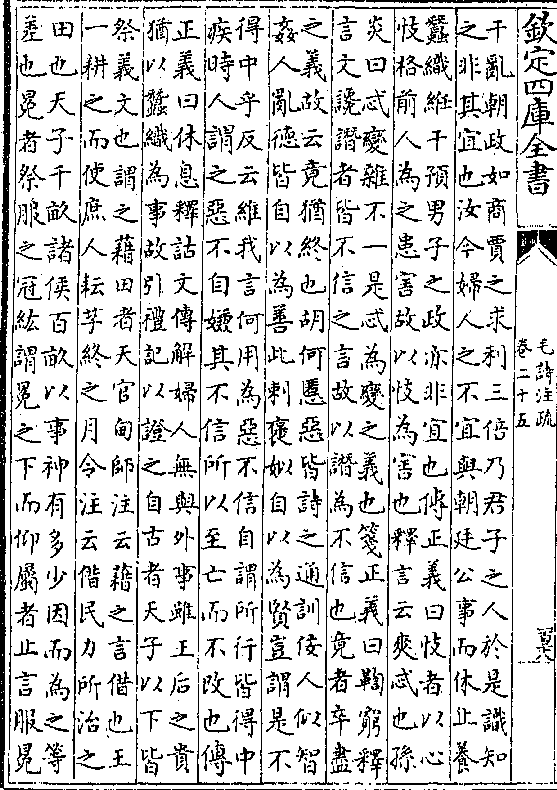 欽定四庫全書
毛詩注疏
卷二十五
干亂朝政如商賈之求利三倍乃君子之人於是識知
之非其宜也汝今婦人之不宜與朝廷公事而休止養
蠶織維干預男子之政亦非宜也傳正義曰忮者以心
忮格前人為之患害故以忮為害也釋言云爽忒也孫
炎曰忒變雜不一是忒為變之義也箋正義曰鞫窮釋
言文讒譖者皆不信之言故以譖為不信也竟者卒盡
之義故云竟猶終也胡何慝惡皆詩之通訓佞人似智
姦人亂德皆自以為善此刺褒姒自以為賢豈謂是不
得中乎反云維我言何用為惡不信自謂所行皆得中
疾時人謂之惡不自其不信所以至亡而不改也傳
正義曰休息釋詁文傳解婦人無與外事雖王后之貴
猶以蠶織為事故引禮記以證之自古者天子以下皆
祭義文也謂之藉田者天官甸師注云藉之言借也王
一耕之而使庶人耘芓終之月令注云借民力所治之
田也天子千畝諸侯百畝以事神有多少因而為之等
差也冕者祭服之冠紘謂冕之下而仰屬者止言服冕